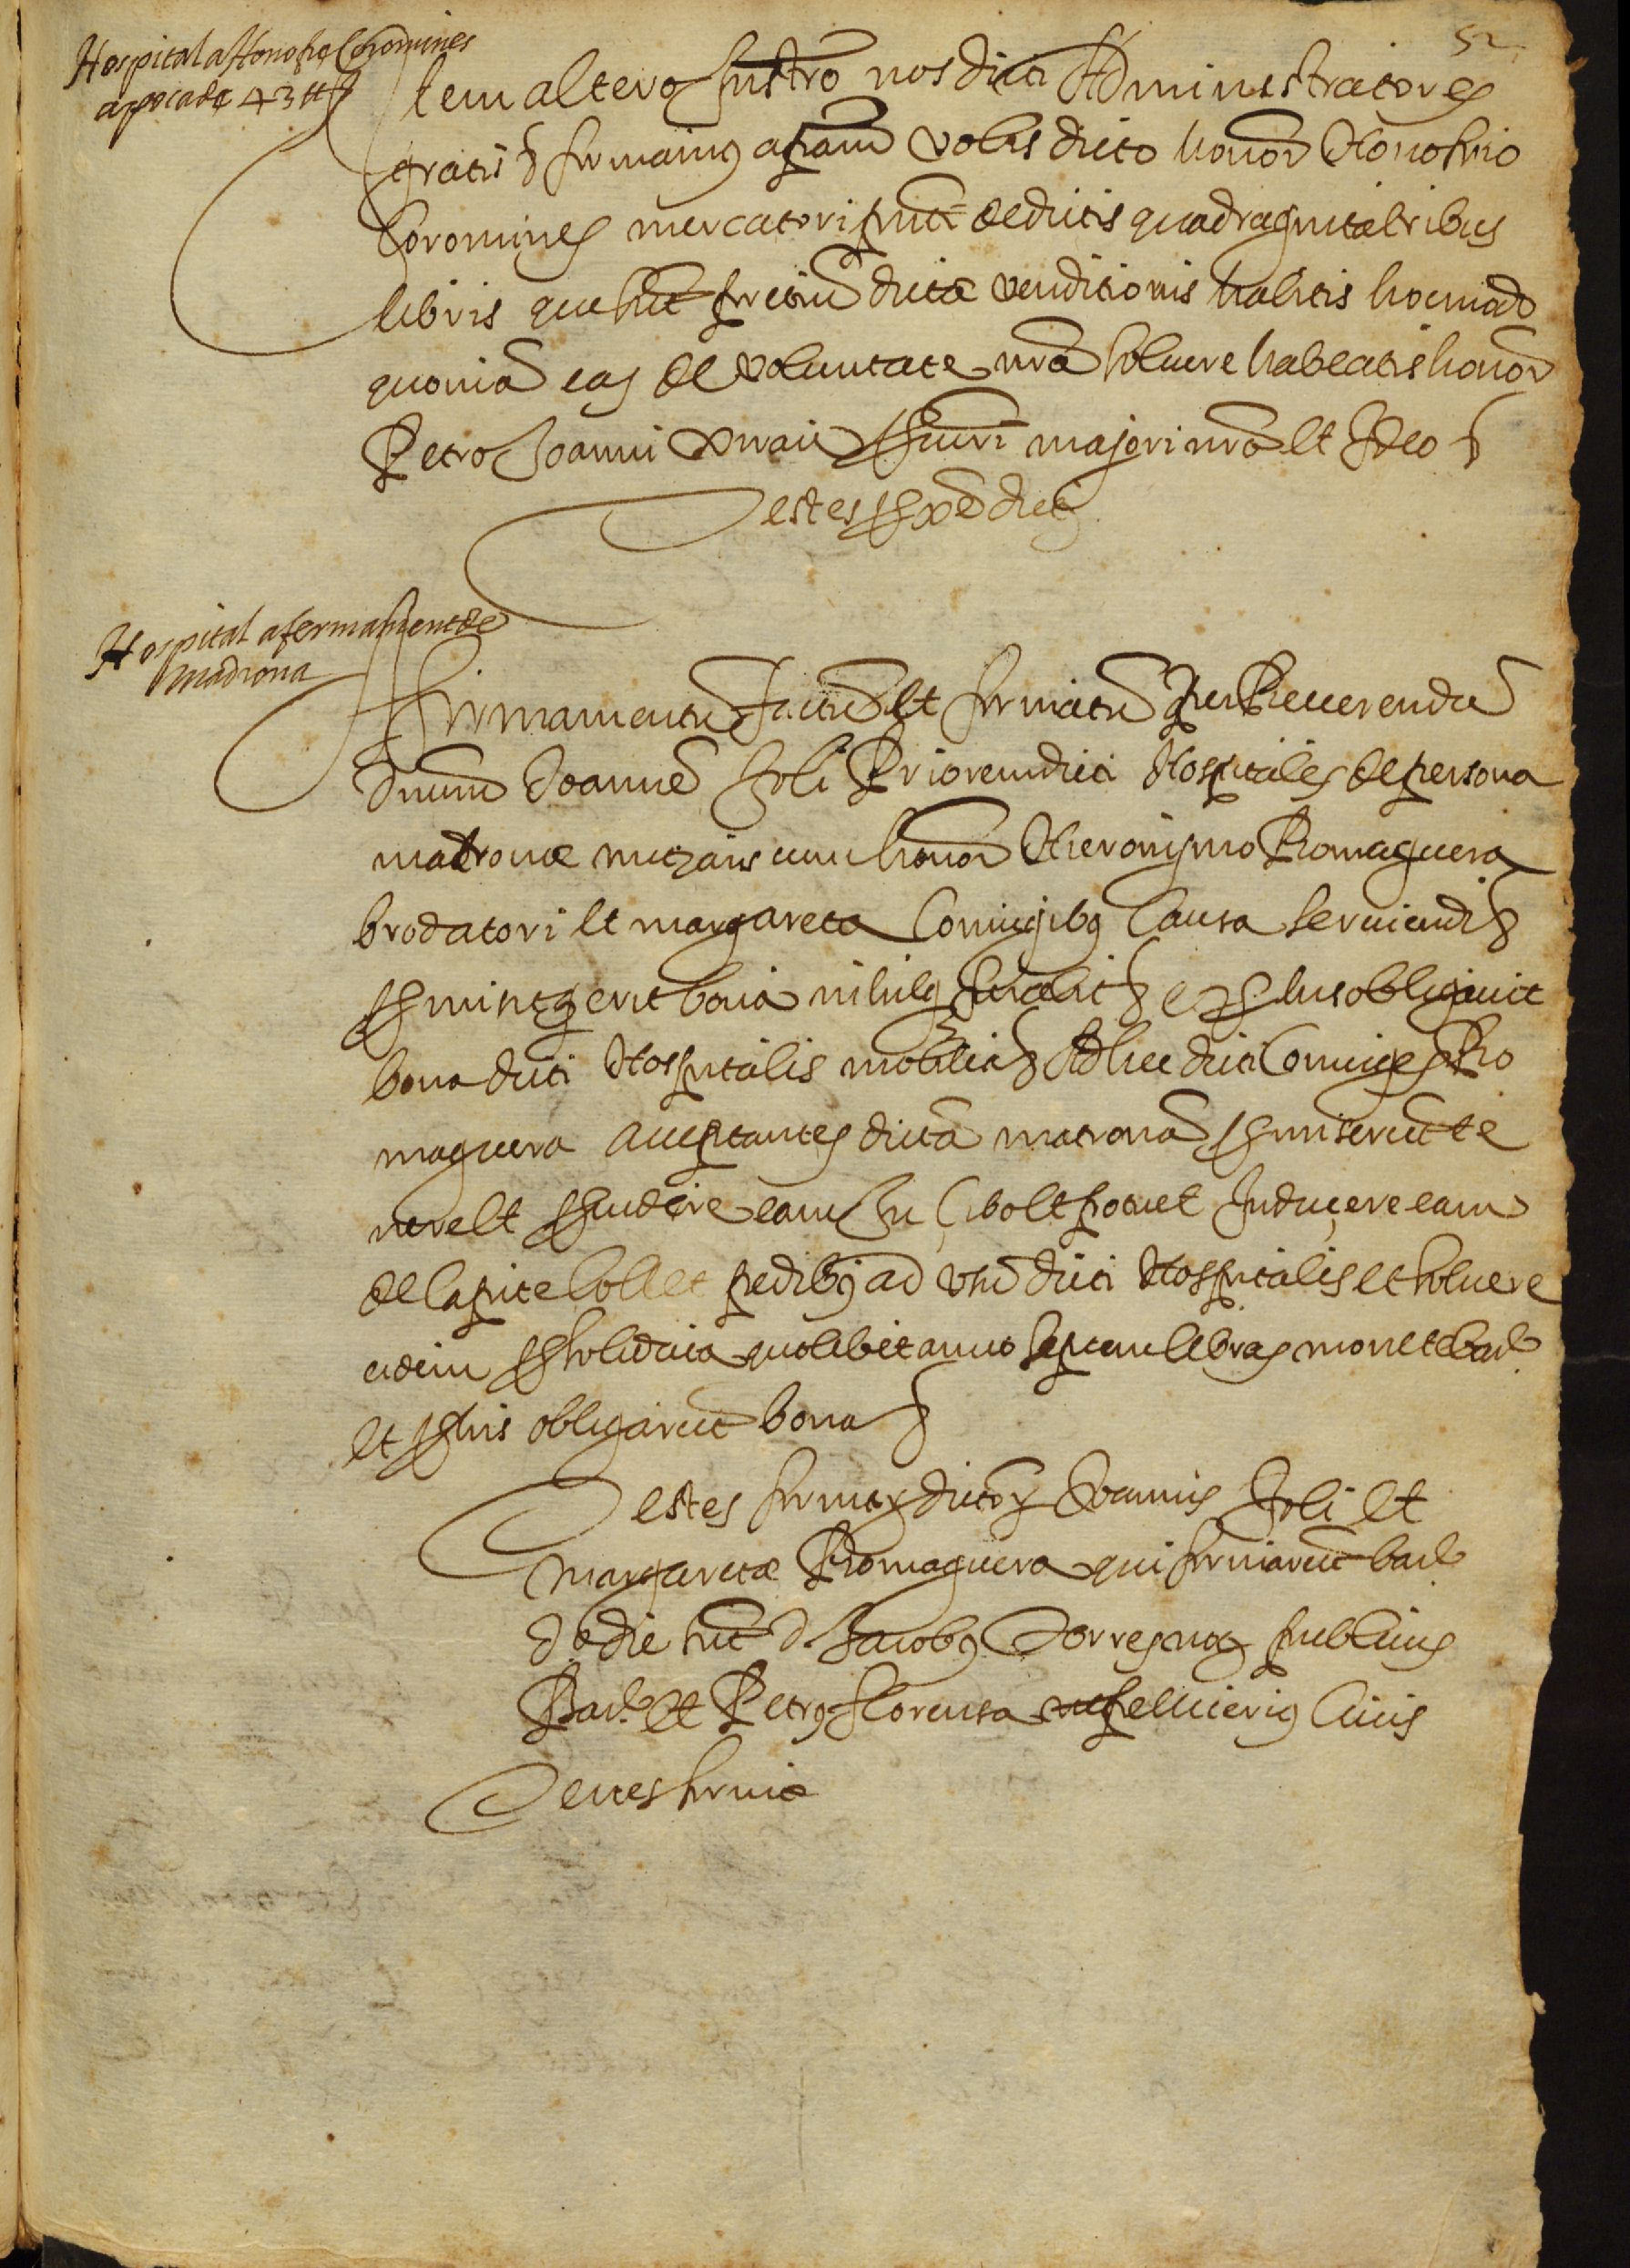 52
Hospital a Honofre Coromines
apoca de 43 ll
Item altero Instro nos dicti Administratores
gratis & firmamus apam vobis dicto honor Honofrio
Coromines mercatori pnti de dictis quadraginta tribus
libris que sut pretiu dicte venditionis habitis hoc modo
quonia eas de voluntate nra solvere habeatis honor
Petro Joanni majori nro Et Ideo &
Testes st dicti
Hospital afermament de
Madrona
Firmamentu factu Et firmatu per Reverendu
dnum Joanne Soli Priorem dicti Hospitales de persona
madrone minyais cum honor Hieronymo Romaguera
brodatori Et margareta Coniugibus Causa serviendi &
bona nihilq obligavit
bona dicti Hospitalis mobilia & Ad hec dicti Coniuges Ro
maguera acceptantes dicta matrona pmiserut te
nere Et eam In Cibo Et potu Et Induere eam
de Capite Collet pedibus ad usu dicti Hospitalis et solvere
eidem p solidata quolibet anno septem libras monete bar
Et p his obligarut bona &
Testes firme dictor Joannis Soli Et
Margarete Romaguera qui firmarut bar
d die sut d Jacobus Torres nots publicus
Bar Et Petrus Florensa Civis
Testes firme